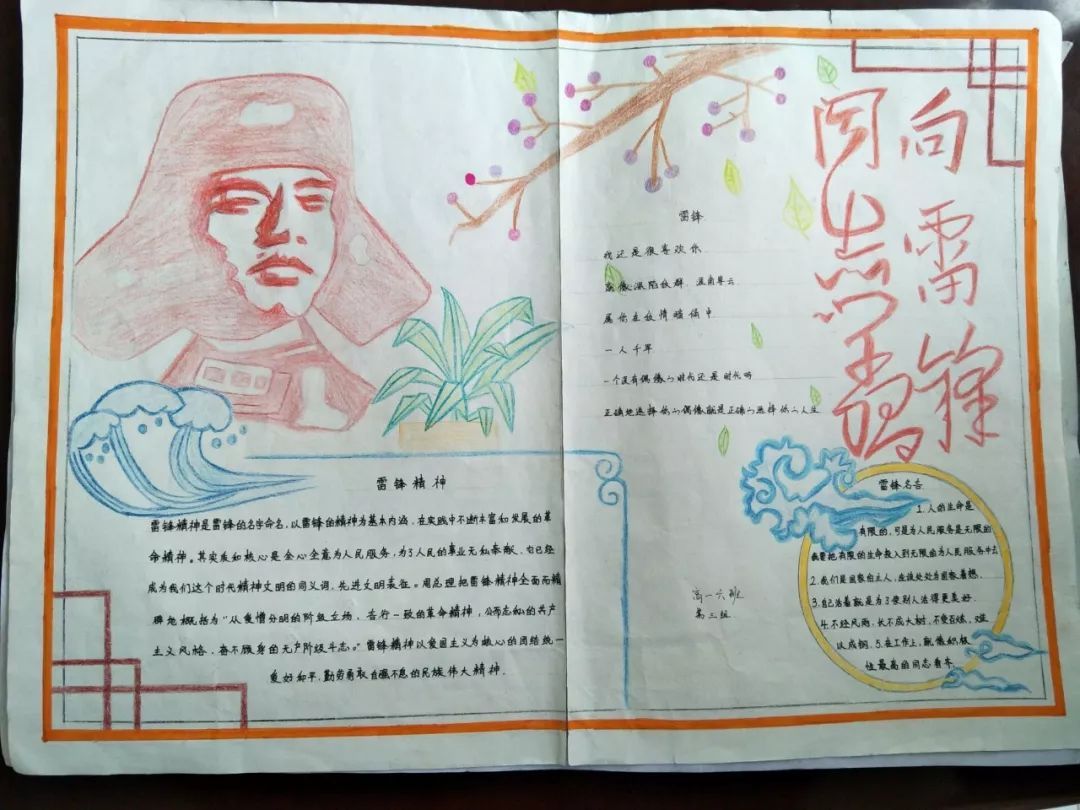 向雷锋
同志学习
雷锋
我还是很喜欢你
像 温南暮云
属你在 情 中
一人千军
一个没有偶像的时代还是时代吗
正确地选择你的偶像就是正确的选择你的人生
雷锋精神
雷锋精神是雷锋的名字命名，以雷锋的精神为基本内涵、在实践中不断丰富和发展的革
命精神。其实质和核心是全心全意为人民服务，为了人民的事业无私奉献。它已经
成为我们这个时代精神文明的同义词、先进文明表征。周总理把雷锋精神全面而精
辟地概括为“从爱憎分明的阶级立场、言行一致的革命精神，公而忘私的共产
主义风格、奋不顾身的无产阶级斗志。”雷锋精神以爱国主义为核心的团结统一
爱好和平，勤劳勇敢自强不息的民族伟大精神.
高一六班
第三组
雷锋名言
1.人的生命是
有限的，可是为人民服务是无限的
我要把有限的生命投入到无限的为人民服务中去
2.我们是国家的主人，应该处处为国家着想.
3.自己活着就是为了使别人活得更美好.
4.不经风雨，长不成大树，不受百炼，难
以成钢.5.在工作上，向积极
性最高的同志看齐